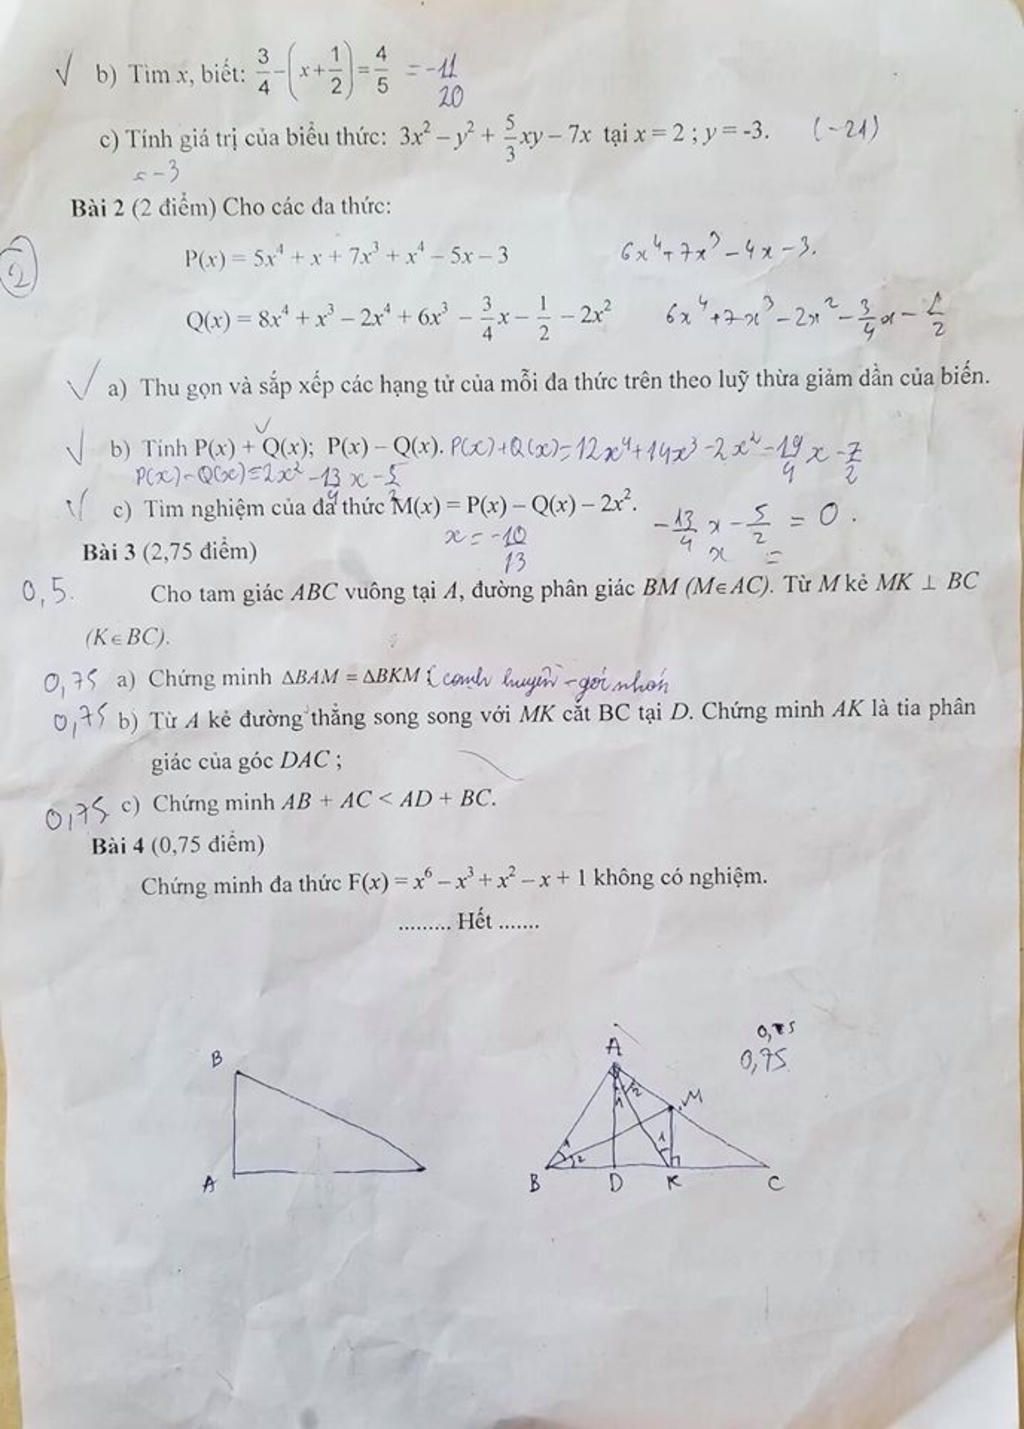 b) Tìm x, biết: 3/4 − (x + 1/2) = 4/5 = -11/20
c) Tính giá trị của biểu thức: 3x² − y² + 5/3 xy − 7x tại x = 2 ; y = -3. (-21)
Bài 2 (2 điểm) Cho các đa thức:
P(x) = 5x⁴ + x + 7x³ + x⁴ − 5x − 3 6x⁴ + 7x³ − 4x − 3.
2
Q(x) = 8x⁴ + x³ − 2x⁴ + 6x³ − 3/4 x − 1/2 − 2x² 6x⁴ + 7x³ − 2x² − 3/4 x − 1/2
a) Thu gọn và sắp xếp các hạng tử của mỗi đa thức trên theo luỹ thừa giảm dần của biến.
b) Tính P(x) + Q(x); P(x) − Q(x). P(x)+Q(x)=12x⁴+14x³−2x²−19/4 x −7/2
P(x)−Q(x)=2x²−13/4 x −5/2
c) Tìm nghiệm của đa thức M(x) = P(x) − Q(x) − 2x². −13/4 x − 5/2 = 0.
x = −10/13 x =
Bài 3 (2,75 điểm)
0,5. Cho tam giác ABC vuông tại A, đường phân giác BM (M∈AC). Từ M kẻ MK ⊥ BC
(K∈BC).
0,75 a) Chứng minh ΔBAM = ΔBKM (cạnh huyền - góc nhọn
0,75 b) Từ A kẻ đường thẳng song song với MK cắt BC tại D. Chứng minh AK là tia phân
giác của góc DAC ;
0,75 c) Chứng minh AB + AC < AD + BC.
Bài 4 (0,75 điểm)
Chứng minh đa thức F(x) = x⁶ − x³ + x² − x + 1 không có nghiệm.
......... Hết .......
0,75
B
A
A
M
1
2
1
2
1
B
D
K
C